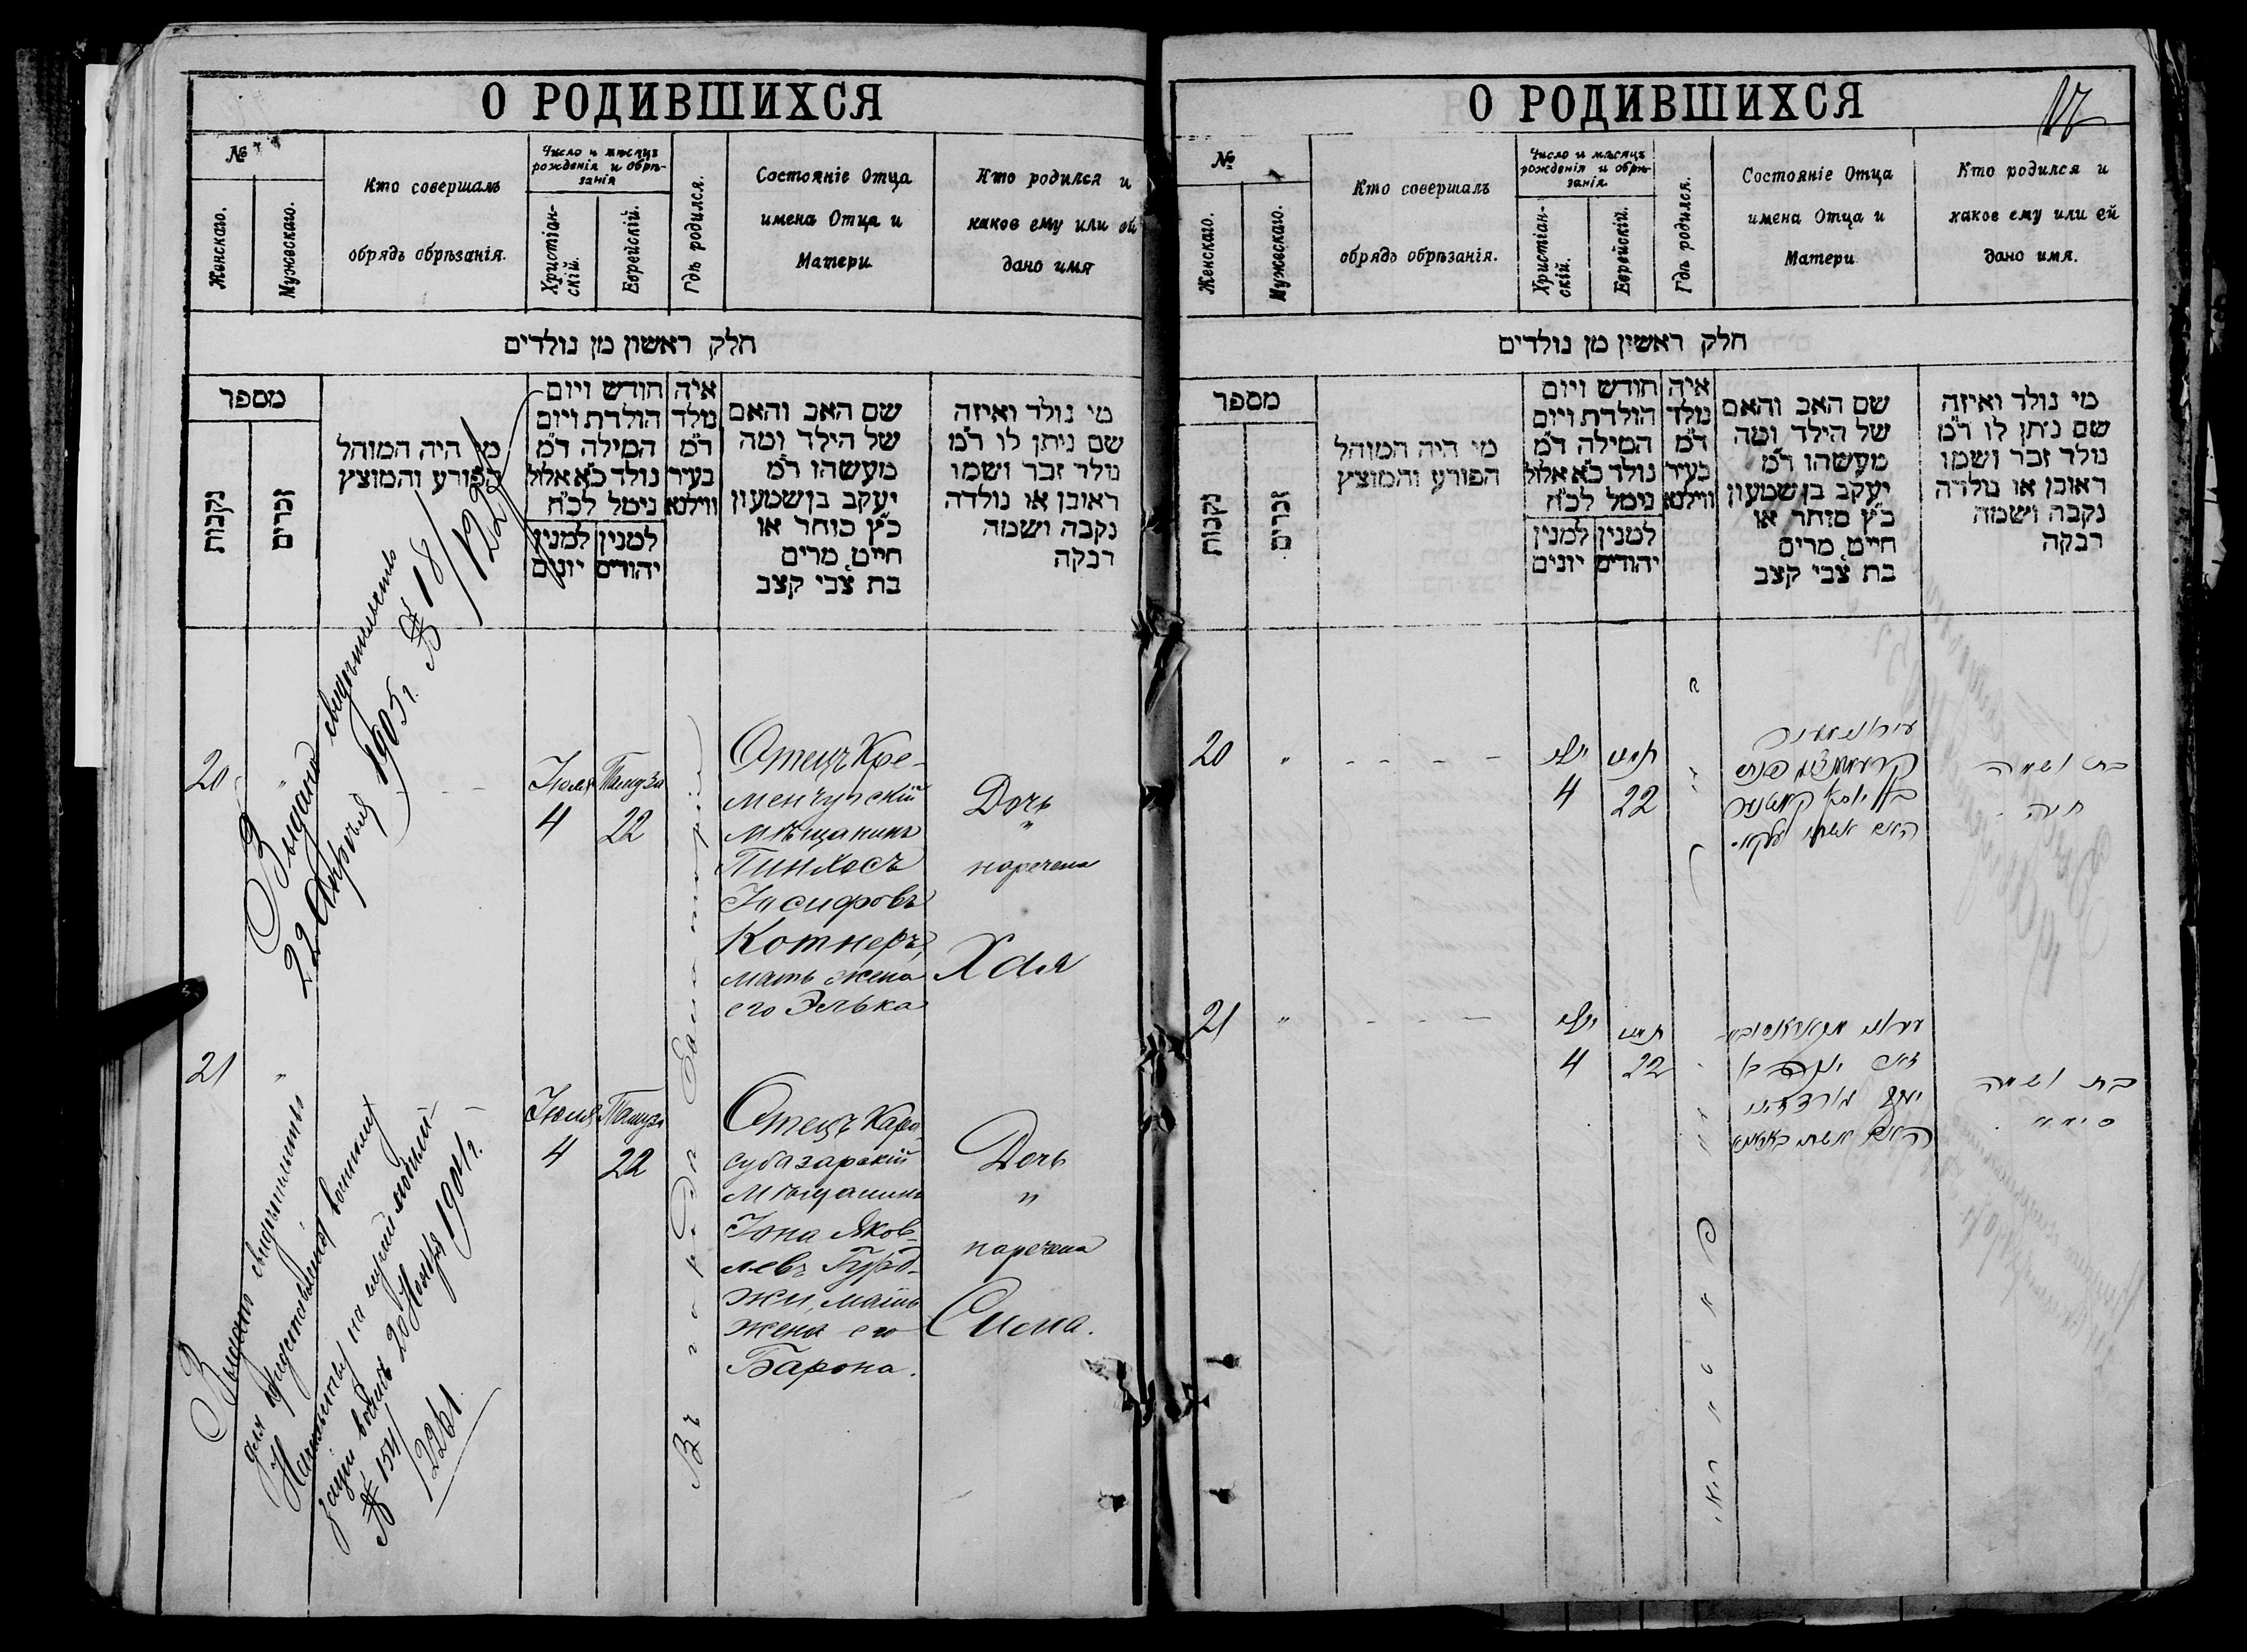 О РОДИВШИХСЯ
№
Женскаго.
Мужескаго.
Кто совершалъ
обрядъ обрѣзанія.
Число и мѣсяцъ
рожденія и обрѣ-
занія
Христіан-
скій.
Еврейскій.
Гдѣ родился.
Состояніе Отца
имена Отца и
Матери
Кто родился и
какое ему или ей
дано имя
חלק ראשון מן נולדים
מספר
נקבות
זכרים
מי היה המוהל
הפורע והמוצץ
חודש ויום
הולדת ויום
המילה ד״מ
נולד כ״א אלול
נימל לכ״ח
למנין
יהודים
למנין
יונים
איה
נולד
ד״מ
בעיר
ווילנא
שם האב והאם
של הילד ומה
מעשהו ד״מ
יעקב בן שמעון
כ״ץ סוחר או
חייט מרים
בת צבי קצב
מי נולד ואיזה
שם ניתן לו ד״מ
נולד זכר ושמו
ראובן או נולדה
נקבה ושמה
רבקה
Выдано свидѣтельство
22 Апрѣля 1905 г. № 18/122
20
"
- -
Іюля
4
Тамуза
22
Въ городѣ Евпаторіи
Отецъ Кре-
менчугскій
мѣщанинъ
Пинхасъ
Іосифовъ
Котнеръ,
мать жена
его Элька
Дочь
"
наречена
Хая
21
"
Выдано свидѣтельство
для представленія воинск
20 Ноября 1904 г.
№ 154/
1226
Іюля
4
Тамуза
22
Отецъ Кара-
субазарскій
мѣщанинъ
Іона Яков-
левъ Гурд-
жи, мать
жена его
Барона.
Дочь
"
наречена
Сима.
О РОДИВШИХСЯ
17
№
Женскаго.
Мужескаго.
Кто совершалъ
обрядъ обрѣзанія.
Число и мѣсяцъ
рожденія и обрѣ-
занія.
Христіан-
скій.
Еврейскій.
Гдѣ родился.
Состояніе Отца
имена Отца и
Матери
Кто родился и
какое ему или ей
дано имя.
חלק ראשון מן נולדים
מספר
נקבות
זכרים
מי היה המוהל
הפורע והמוצץ
חודש ויום
הולדת ויום
המילה ד״מ
נולד כ״א אלול
נימל לכ״ח
למנין
יהודים
למנין
יונים
איה
נולד
ד״מ
בעיר
ווילנא
שם האב והאם
של הילד ומה
מעשהו ד״מ
יעקב בן שמעון
כ״ץ סוחר או
חייט מרים
בת צבי קצב
מי נולד ואיזה
שם ניתן לו ד״מ
נולד זכר ושמו
ראובן או נולדה
נקבה ושמה
רבקה
20
"
- - - -
יולי
4
תמוז
22
בת ושמה
חיה
21
"
- - -
יולי
4
תמוז
22
בת ושמה
סימא